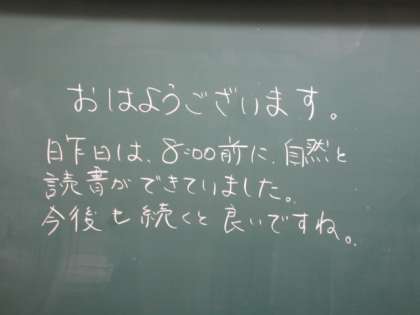 おはようございます。
昨日は、8:00前に、自然と
読書ができていました。
今後も続くと良いですね。